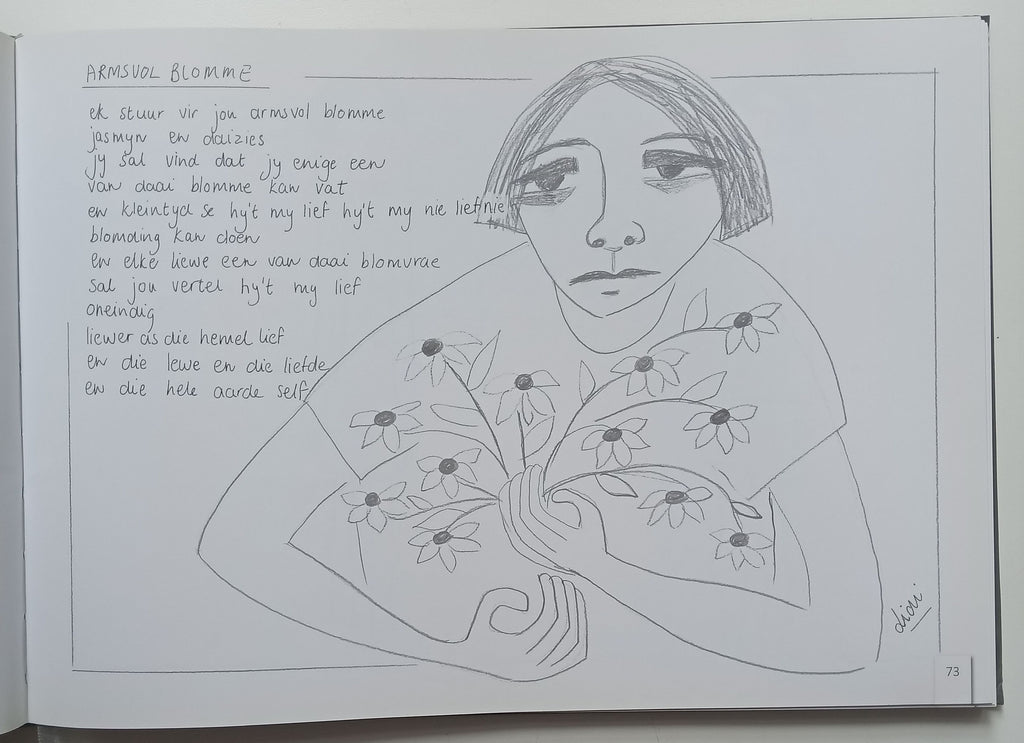 ARMSVOL BLOMME
ek stuur vir jou armsvol blomme
jasmyn en daizies
jy sal vind dat jy enige een
van daai blomme kan vat
en kleintyd se hy't my lief hy't my nie lief nie
blomding kan doen
en elke liewe een van daai blomvrae
sal jou vertel hy't my lief
oneindig
liewer as die hemel lief
en die lewe en die liefde
en die hele aarde self
73